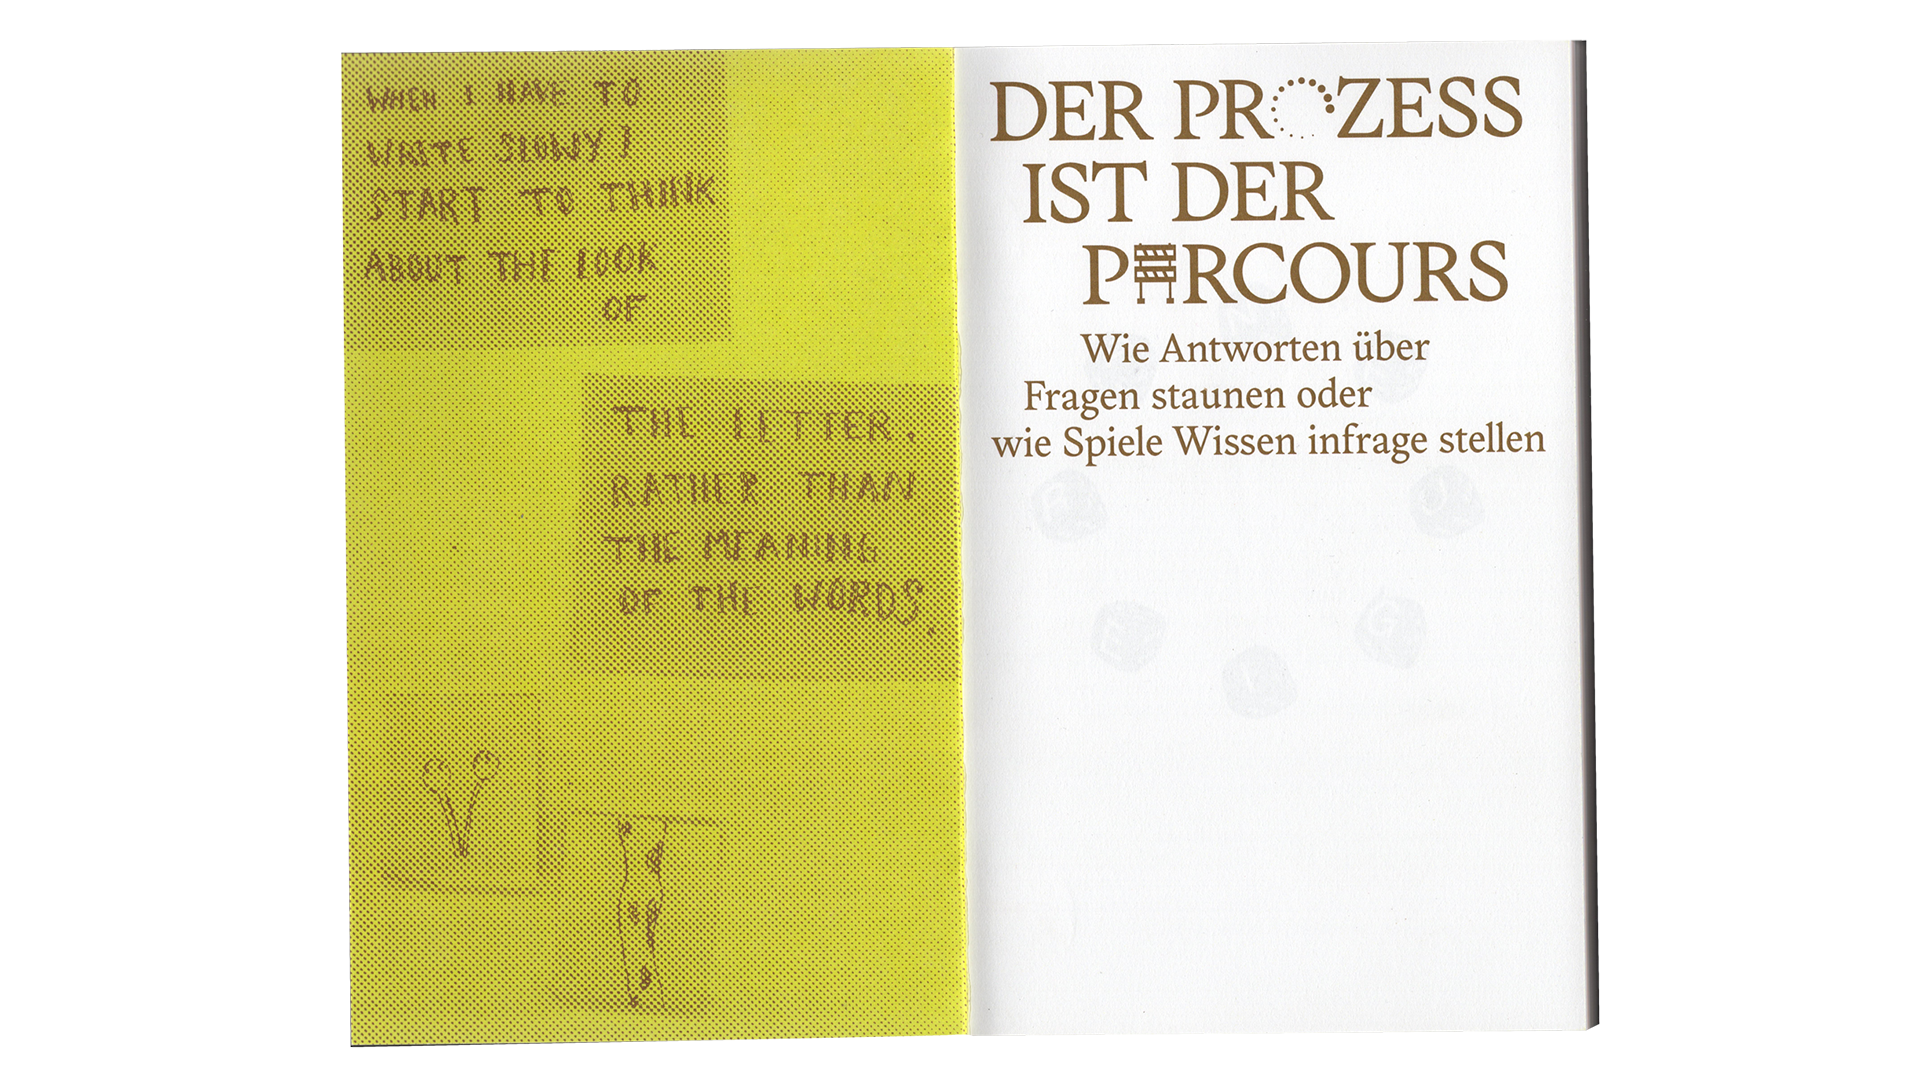 WHEN I HAVE TO
WRITE SLOWY I
START TO THINK
ABOUT THE LOOK
OF
THE LETTER,
RATHER THAN
THE MEANING
OF THE WORDS.
DER PROZESS
IST DER
PARCOURS
Wie Antworten über
Fragen staunen oder
wie Spiele Wissen infrage stellen